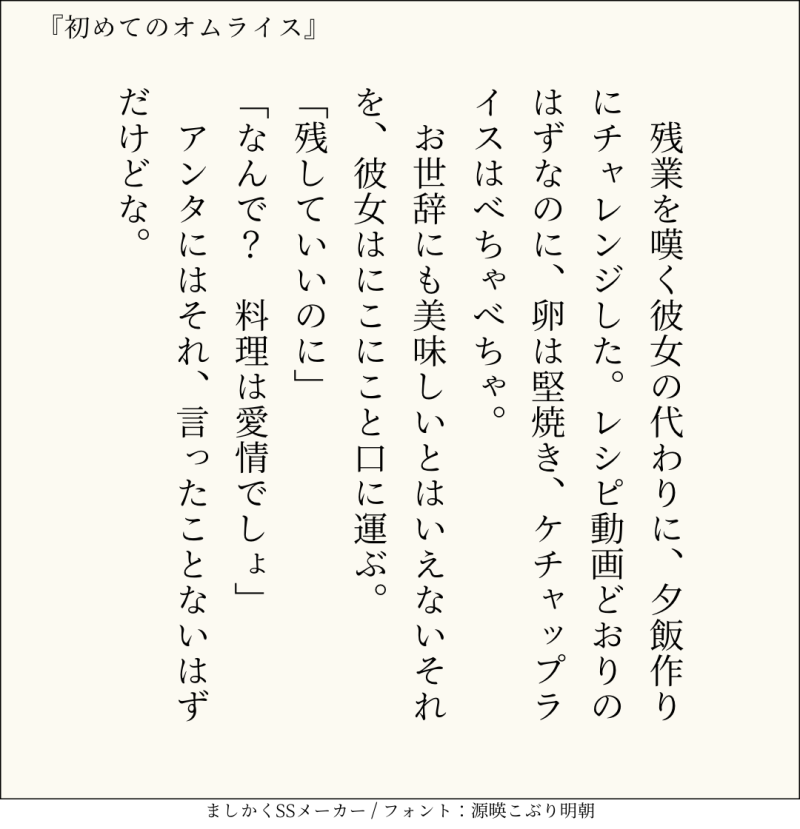 『初めてのオムライス』
　残業を嘆く彼女の代わりに、夕飯作り
にチャレンジした。レシピ動画どおりの
はずなのに、卵は堅焼き、ケチャップラ
イスはべちゃべちゃ。
　お世辞にも美味しいとはいえないそれ
を、彼女はにこにこと口に運ぶ。
「残していいのに」
「なんで？　料理は愛情でしょ」
　アンタにはそれ、言ったことないはず
だけどな。
ましかくSSメーカー / フォント：源暎こぶり明朝